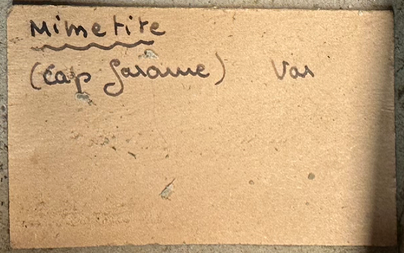 Mimetite
(Cap Garonne) Var